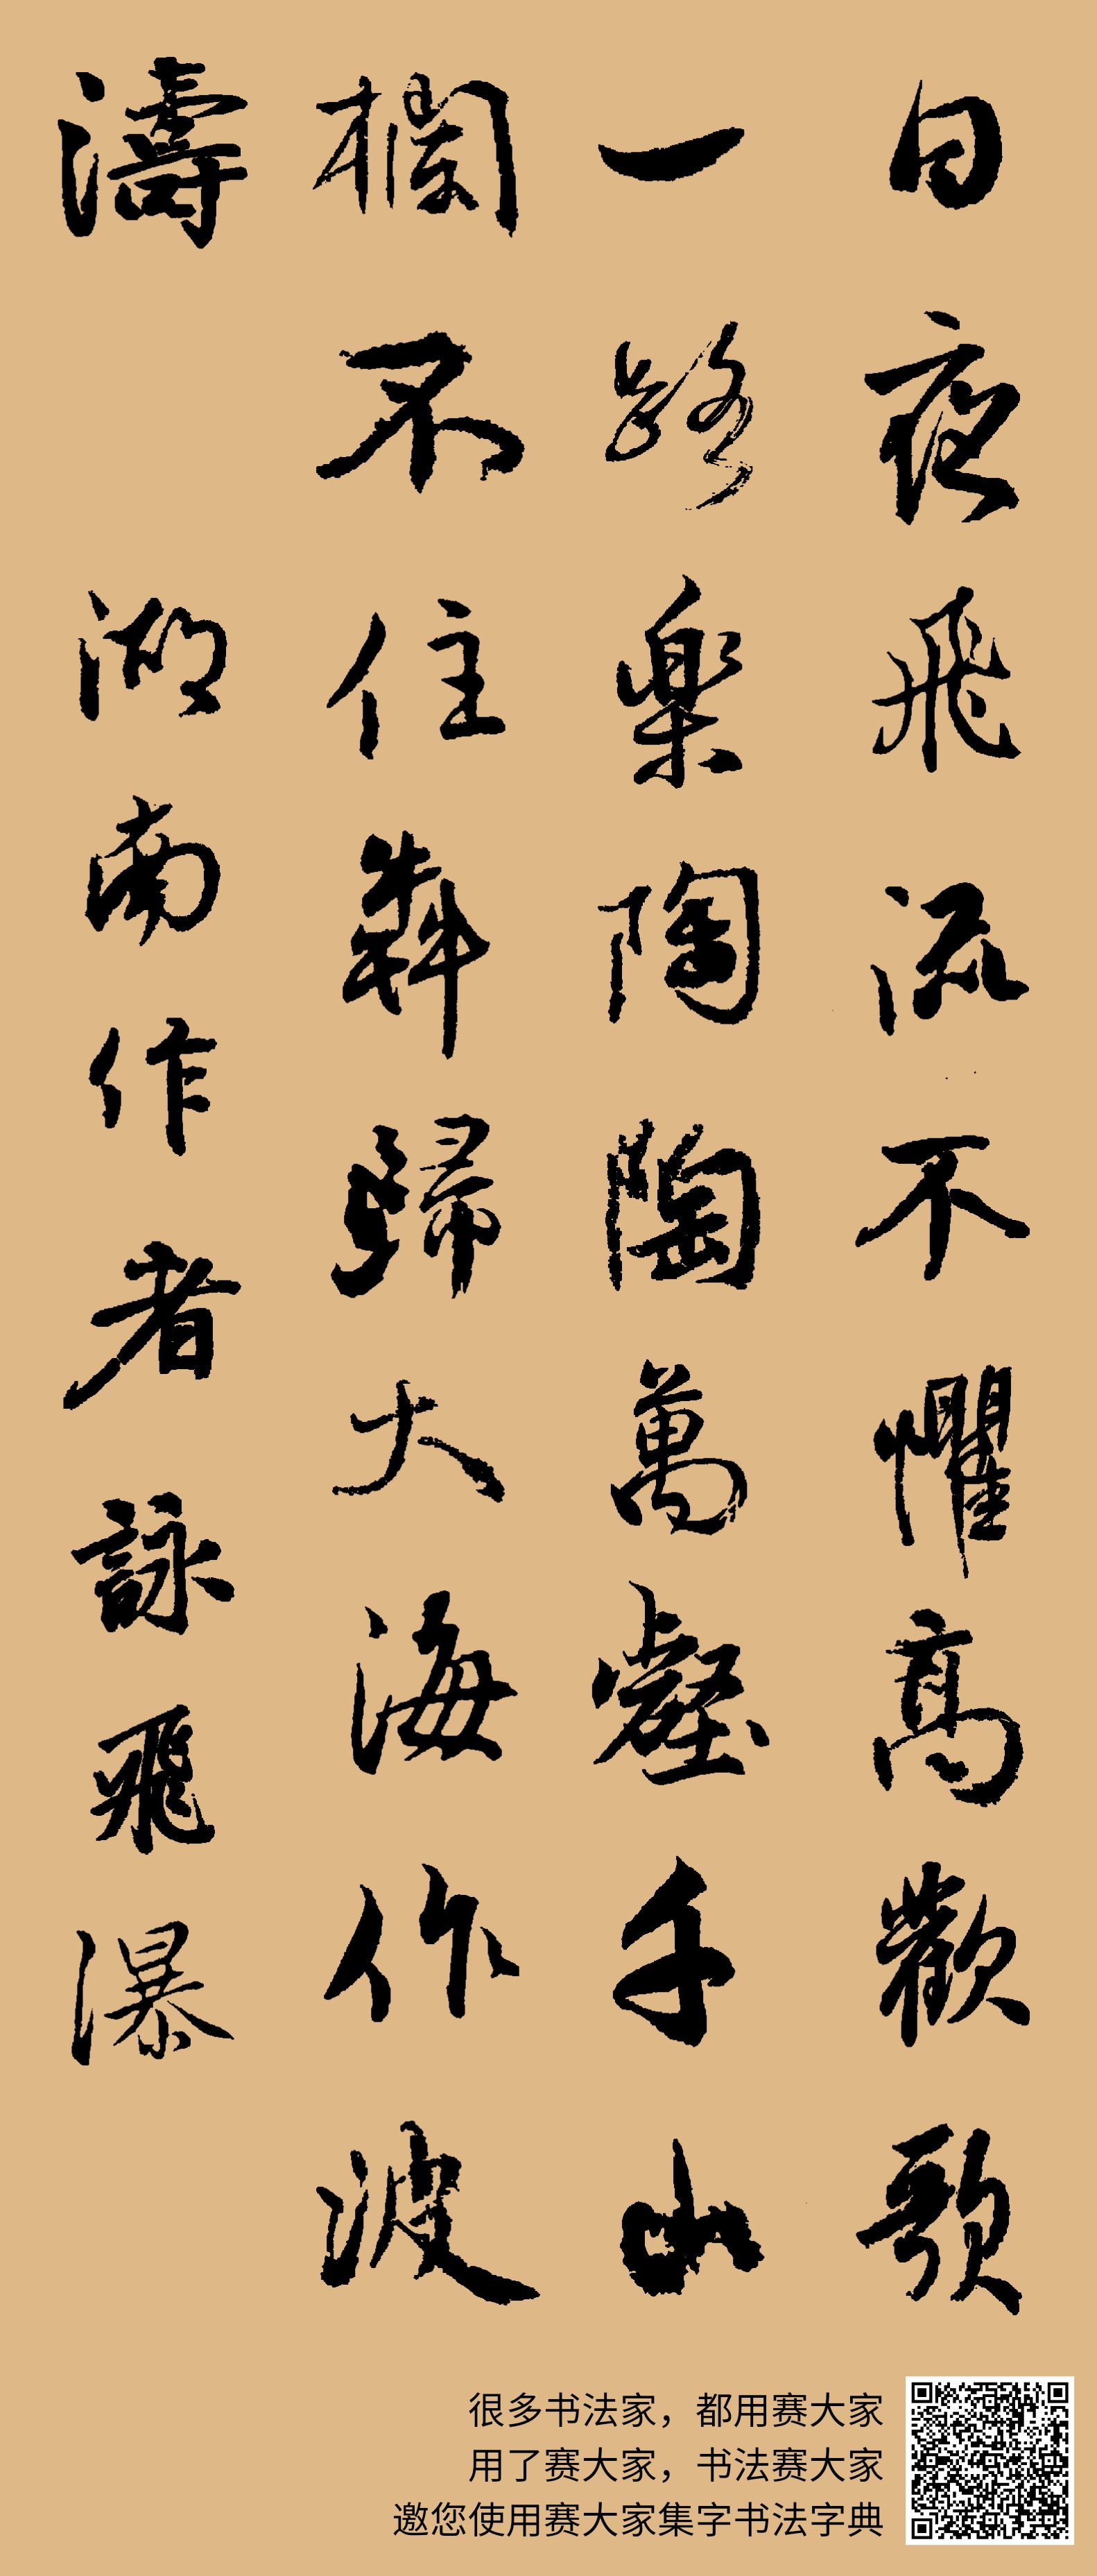 日夜飛流不懼高歡歌
一路樂陶陶萬壑千山
欄不住犇歸大海作波
濤
湖南作者詠飛瀑
很多书法家，都用赛大家
用了赛大家，书法赛大家
邀您使用赛大家集字书法字典